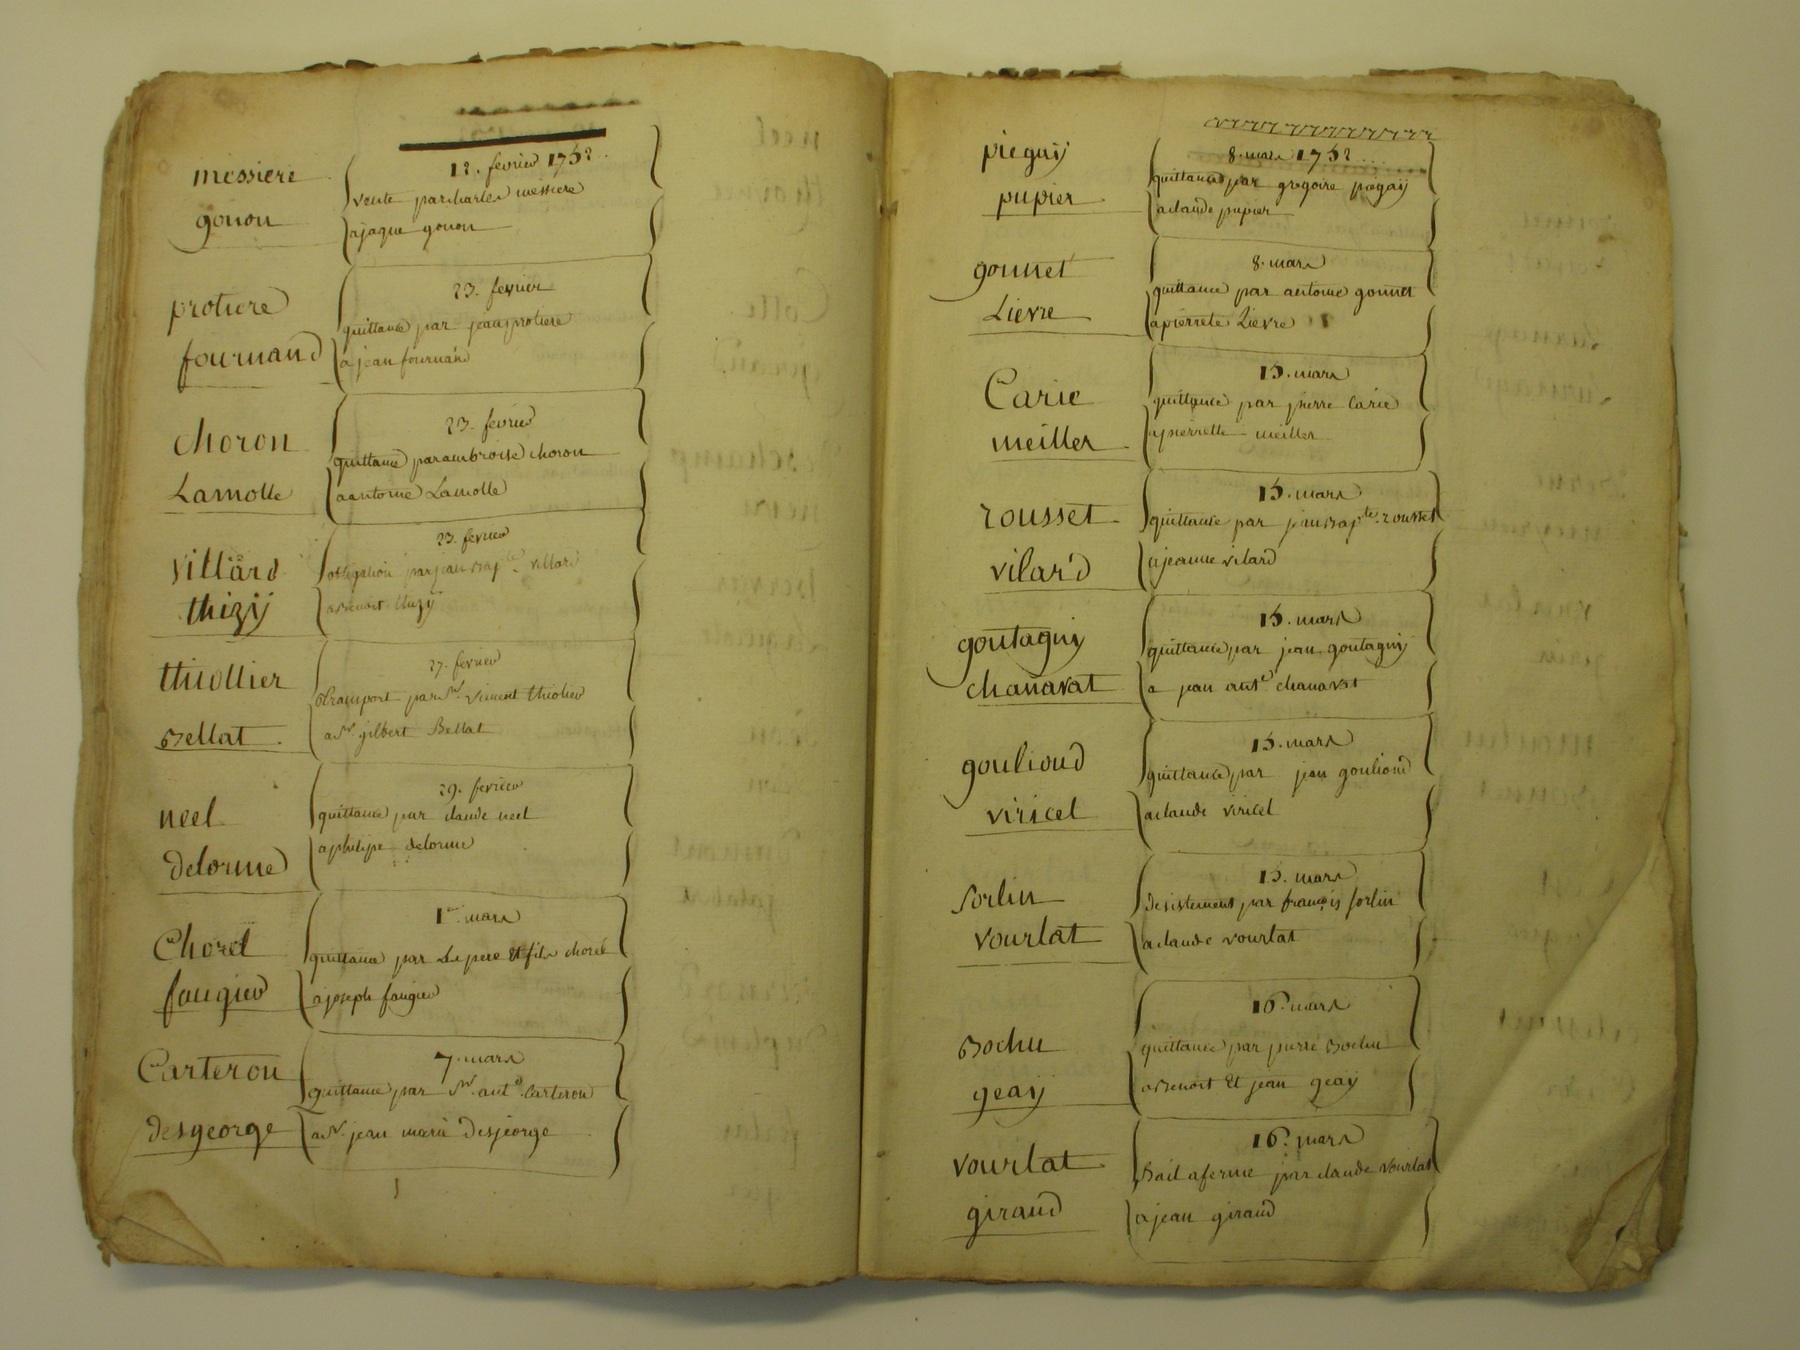 messiere
gonon
12. fevrier 1752.
vente par charles messiere
a jaque gonon
protiere
fournand
23. fevrier
quittance par jean protiere
a jean fournand
choron
Lamolle
23. fevrier
quittance par ambroise choron
a antoine Lamolle
villard
thizÿ
23. fevrier
obligation par jean bap.te villard
a Benoit thizÿ
thiollier
Bellat
27. fevrier
transport par Sr. vincent thiolier
a Sr. gilbert Bellat
neel
delorme
29. fevrier
quittance par claude neel
a philipe delorme
Chorel
faugier
1er. mars
quittance par Le pere Et fils chorel
a joseph faugier
Carteron
desgeorge
7. mars
quittance par Sr. ante. Carteron
a Sr. jean marie Desjeorge
piegaÿ
pupier
8. mars 1752
quittance par gregoire piegaÿ
a claude pupier
gonnet
Lievre
8. mars
quittance par antoine gonnet
a pierrete Lievre
Carie
meiller
15. mars
quittance par pierre Carie
a pierrette meiller
rousset
vilard
15. mars
quittance par jean bapte. rousset
a jeanne vilard
goutagnÿ
chanavat
15. mars
quittance par jean goutagnÿ
a jean ante chanavat
gouliond
viricel
15. mars
quittance par jean gouliond
a claude viricel
Sorlin
vourlat
15. mars
desistement par françois sorlin
a claude vourlat
Bochu
geaÿ
16. mars
quittance par pierre Bochu
a Benoit Et jean geaÿ
vourlat
giraud
16. mars
Bail a ferme par claude vourlat
a jean giraud